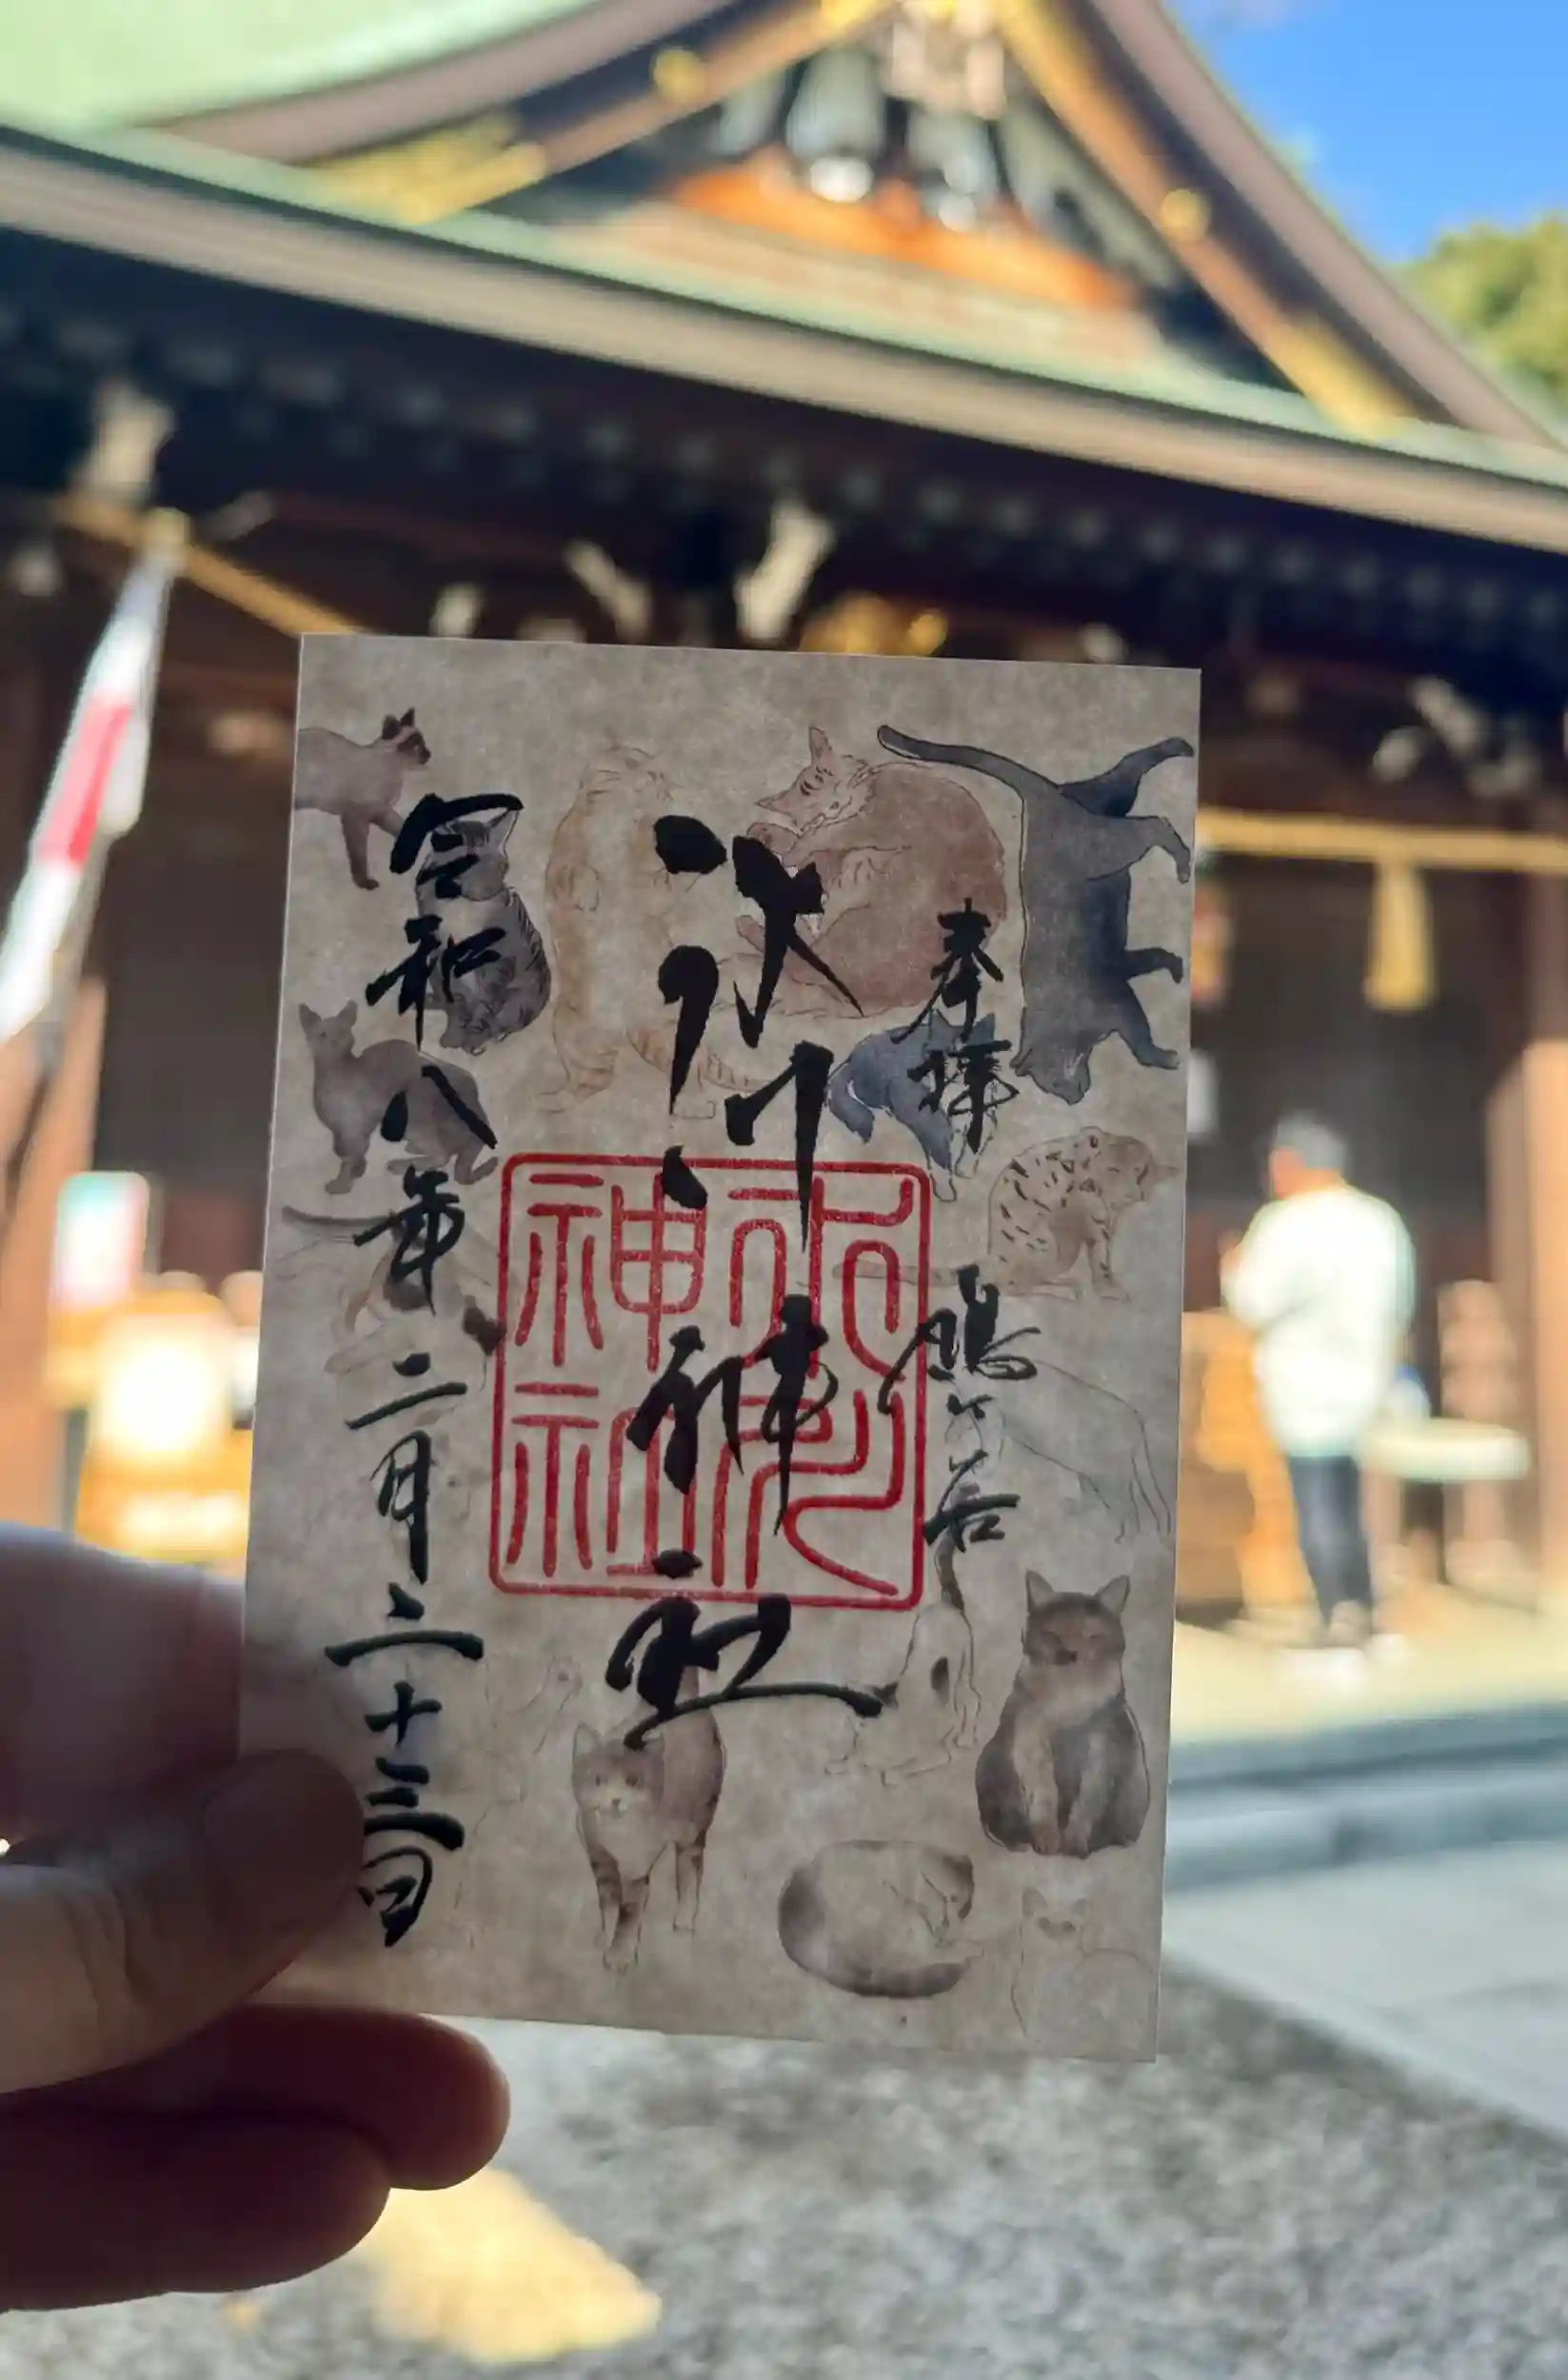 奉拝
鳩ヶ谷
氷川神社
氷川神社
令和八年二月二十三日